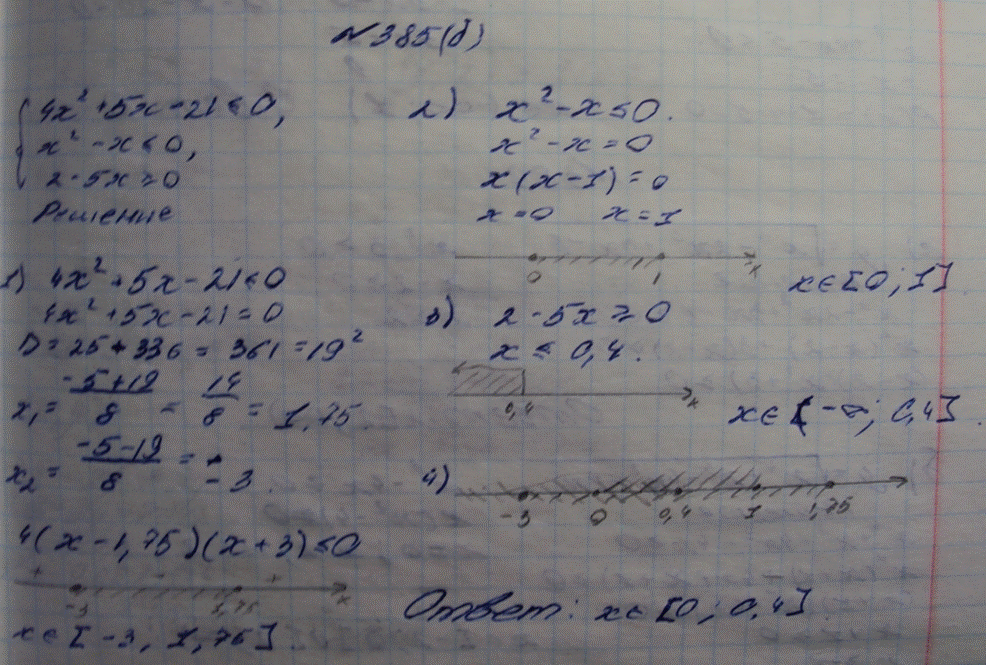 №385(б)
4x² + 5x - 21 ≤ 0,
x² - x ≤ 0,
2 - 5x ≥ 0
Решение
1) 4x² + 5x - 21 ≤ 0
4x² + 5x - 21 = 0
D = 25 + 336 = 361 = 19²
x₁ = (-5+19)/8 = 14/8 = 1,75
x₂ = (-5-19)/8 = -3.
4(x - 1,75)(x + 3) ≤ 0
+ - +
-3 1,75 x
x ∈ [-3; 1,75]
2) x² - x ≤ 0.
x² - x = 0
x(x - 1) = 0
x = 0 x = 1
0 1 x
x ∈ [0; 1].
3) 2 - 5x ≥ 0
x ≤ 0,4.
0,4 x
x ∈ (-∞; 0,4].
4)
-3 0 0,4 1 1,75
Ответ: x ∈ [0; 0,4].